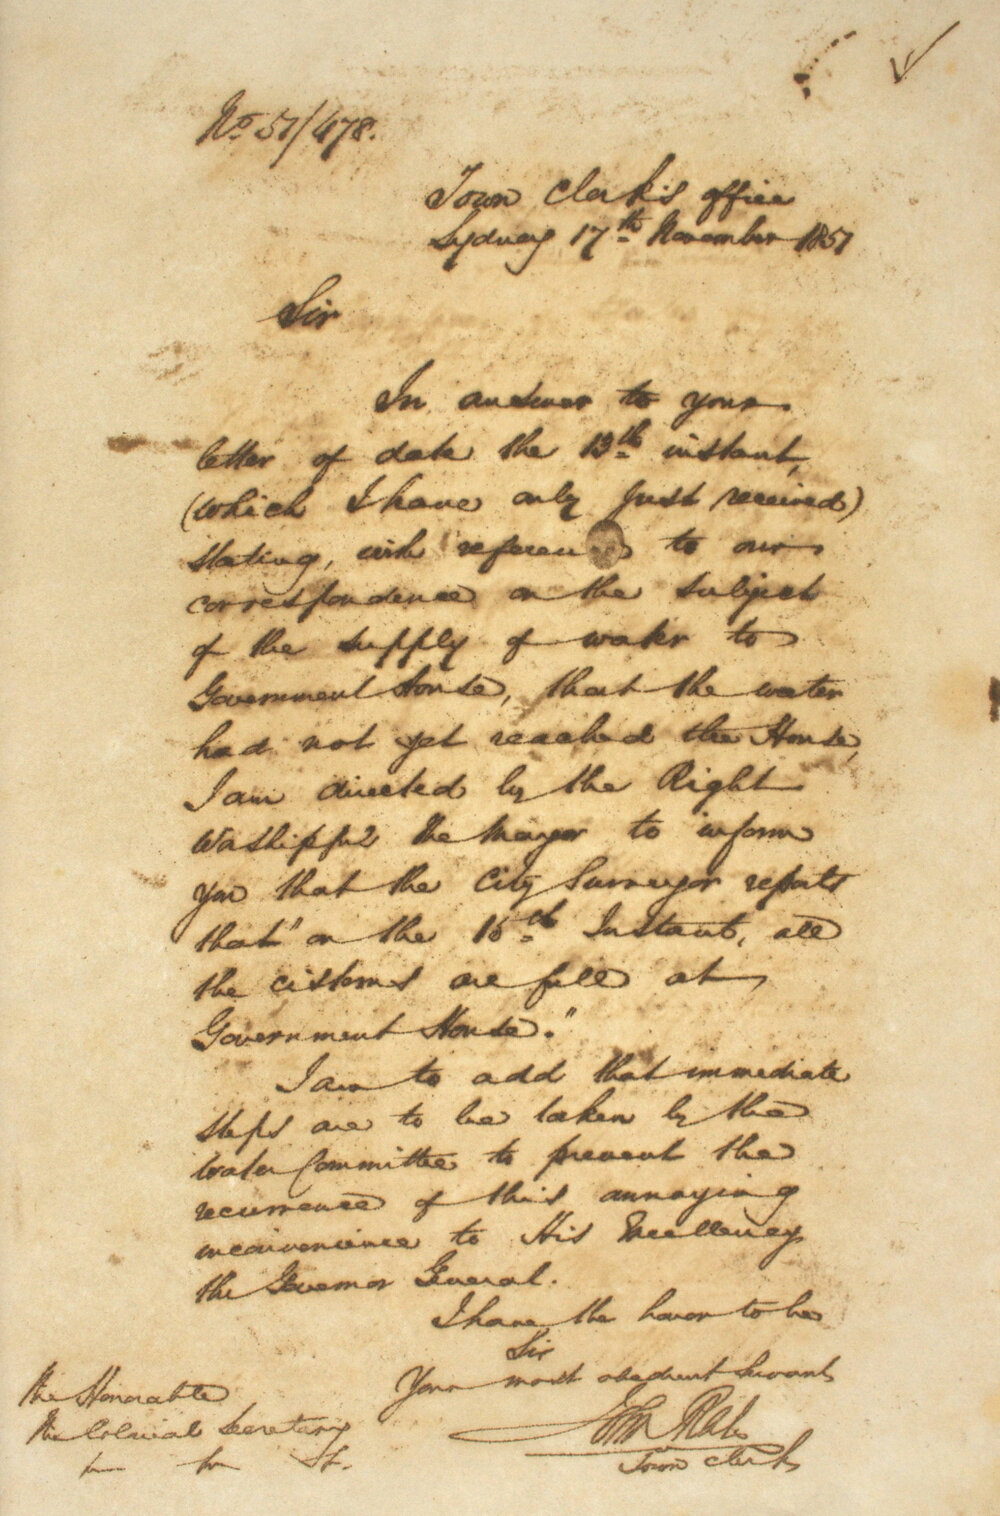 No. 51/478.
Town Clerk's office
Sydney 17th November 1851
Sir
In answer to your
letter of date the 13th instant,
(which I have only just received)
stating, with reference to our
correspondence on the subject
of the supply of water to
Government House, that the water
had not yet reached the House,
I am directed by the Right
Worshipful the Mayor to inform
you that the City Surveyor reports
that "on the 16th Instant, all
the cisterns are full at
Government House."
I am to add that immediate
steps are to be taken by the
Water Committee to prevent the
recurrence of this annoying
inconvenience to His Excellency
the Governor General.
I have the honor to be
Sir
Your most obedient Servant
John Rae
Town Clerk
The Honorable
The Colonial Secretary